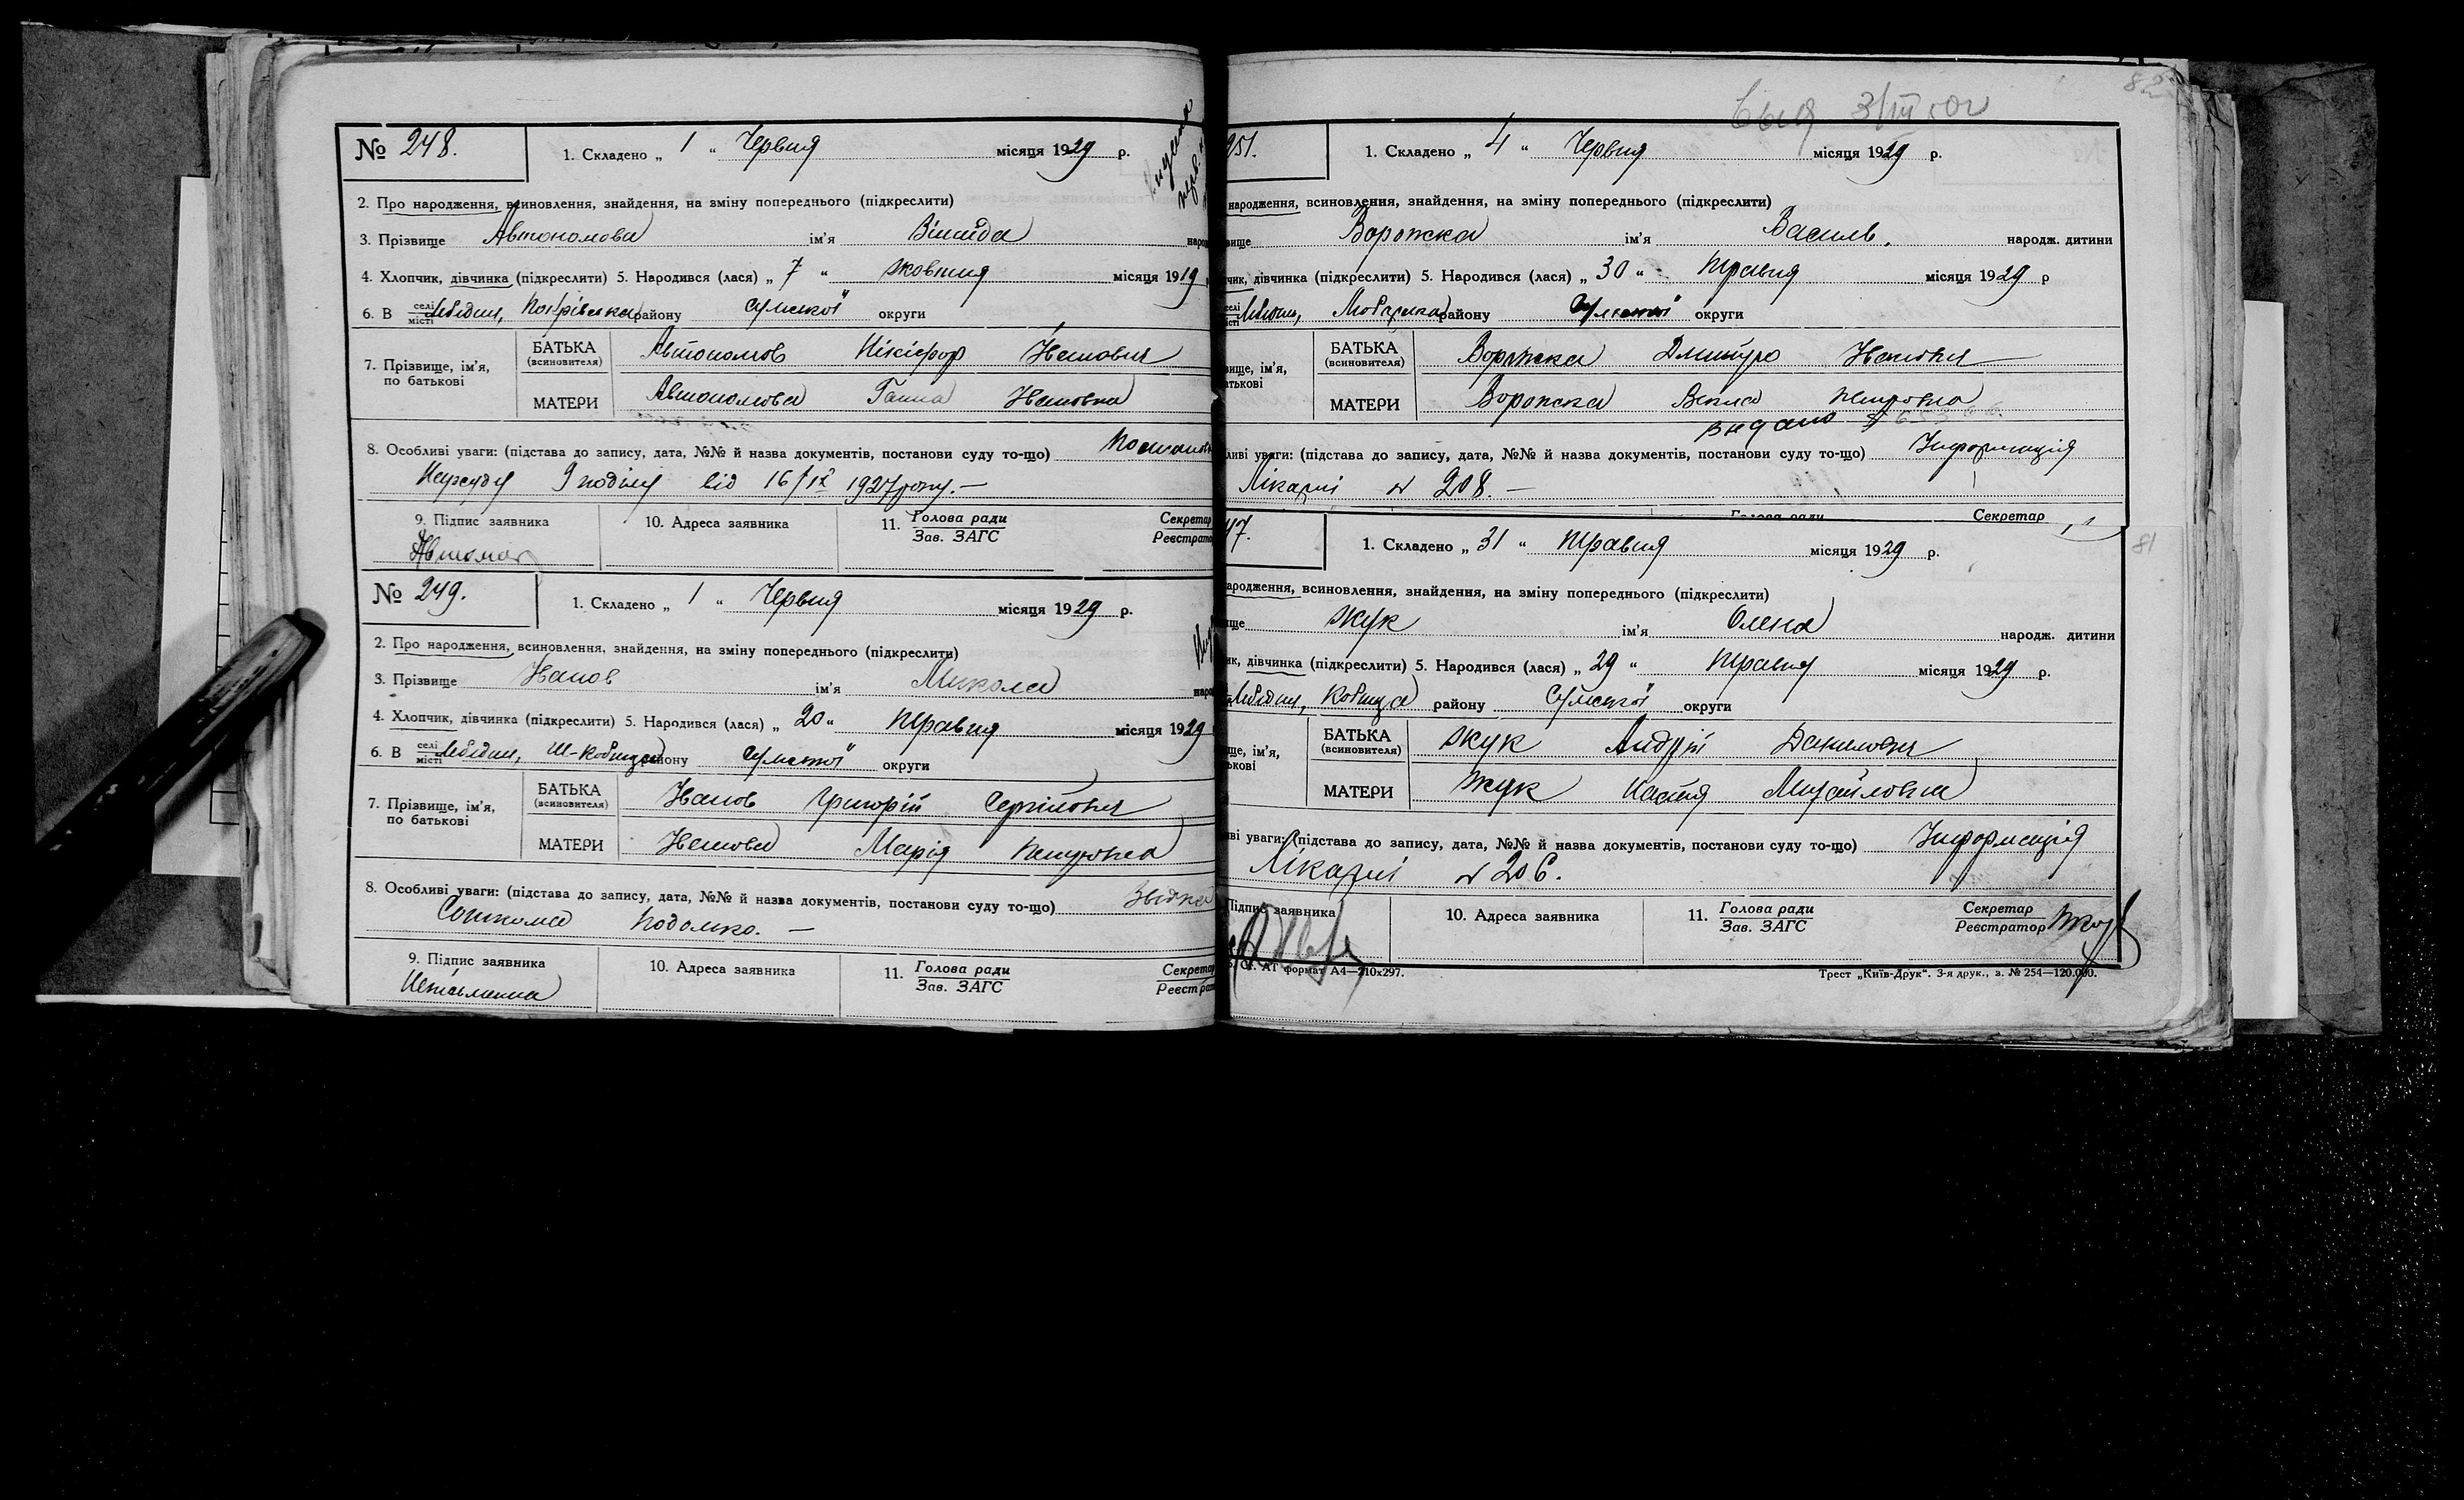 № 248.
1. Складено „ 1 “ Червня місяця 1929 р.
2. Про народження, всиновлення, знайдення, на зміну попереднього (підкреслити)
3. Прізвище Автономова ім'я
4. Хлопчик, дівчинка (підкреслити) 5. Народився (лася) „ 7 “ жовтня місяця 1919
6. В селі місті Лебедин, району Сумської округи
7. Прізвище, ім'я, по батькові
БАТЬКА (всиновителя) Автономов Нікіфор Іванович
МАТЕРИ Автономова Ганна Івановна
8. Особливі уваги: (підстава до запису, дата, №№ й назва документів, постанови суду то-що)
Нарсуду від 16/IX 1927 року. —
9. Підпис заявника
10. Адреса заявника
11. Голова ради Зав. ЗАГС
Секретар
№ 249.
1. Складено „ 1 “ Червня місяця 1929 р.
2. Про народження, всиновлення, знайдення, на зміну попереднього (підкреслити)
3. Прізвище Іванов ім'я Микола
4. Хлопчик, дівчинка (підкреслити) 5. Народився (лася) „ 20 “ Травня місяця 1929
6. В селі місті Лебедин, району Сумської округи
7. Прізвище, ім'я, по батькові
БАТЬКА (всиновителя) Іванов Григорій Сергійович
МАТЕРИ Іванова Марія Петровна
8. Особливі уваги: (підстава до запису, дата, №№ й назва документів, постанови суду то-що)
9. Підпис заявника
Неписьменна
10. Адреса заявника
11. Голова ради Зав. ЗАГС
82
3/III
251.
1. Складено „ 4 “ Червня місяця 1929 р.
народження, всиновлення, знайдення, на зміну попереднього (підкреслити)
Ворожка ім'я Василь. народж. дитини
дівчинка (підкреслити) 5. Народився (лася) „ 30 “ Травня місяця 1929 р
Лебедин, району Сумської округи
БАТЬКА (всиновителя) Ворожка Дмитро Іванович
МАТЕРИ Ворожка Векла Петровна
видано
уваги: (підстава до запису, дата, №№ й назва документів, постанови суду то-що) Інформація
Лікарні № 208. —
Голова ради Секретар
47.
81
1. Складено „ 31 “ Травня місяця 1929 р.
народження, всиновлення, знайдення, на зміну попереднього (підкреслити)
Жук ім'я Олена народж. дитини
дівчинка (підкреслити) 5. Народився (лася) „ 29 “ Травня місяця 1929 р.
Лебедин, Кобища району Сумської округи
БАТЬКА (всиновителя) Жук Андрій Данилович
МАТЕРИ Жук Настя Михайловна
уваги: (підстава до запису, дата, №№ й назва документів, постанови суду то-що) Інформація
Лікарні № 206.
Підпис заявника
10. Адреса заявника
11. Голова ради Зав. ЗАГС
Секретар Реєстратор
формат А4—210х297.
Трест „Київ-Друк“. 3-я друк., з. № 254—120.000.